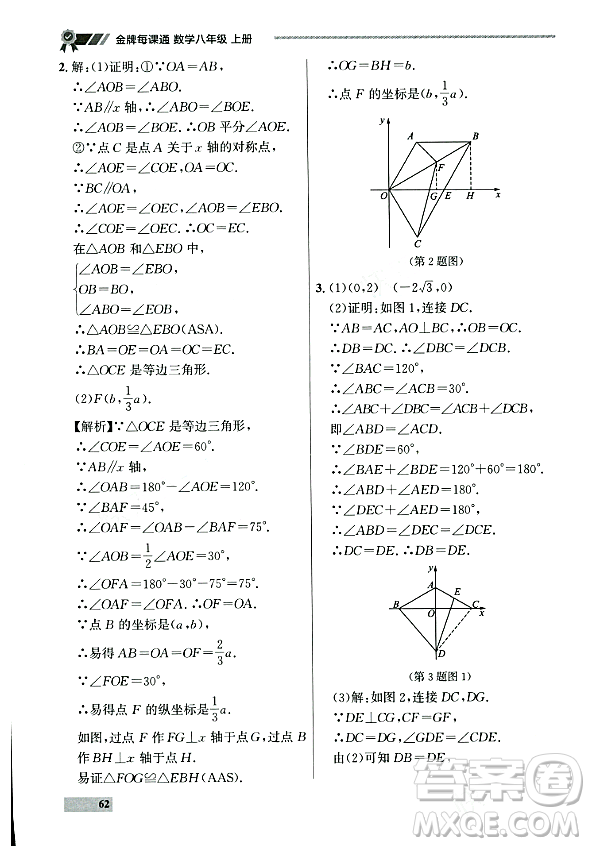 金牌每课通 数学八年级 上册
2. 解:(1)证明:①∵OA=AB,
∴∠AOB=∠ABO.
∵AB∥x 轴,∴∠ABO=∠BOE.
∴∠AOB=∠BOE. ∴OB 平分∠AOE.
②∵点 C 是点 A 关于 x 轴的对称点,
∴∠AOE=∠COE,OA=OC.
∵BC∥OA,
∴∠AOE=∠OEC,∠AOB=∠EBO.
∴∠COE=∠OEC. ∴OC=CE.
在△AOB 和△EBO 中,
∠AOB=∠EBO,
OB=BO,
∠ABO=∠EOB,
∴△AOB≌△EBO(ASA).
∴BA=OE=OA=OC=EC.
∴△OCE 是等边三角形.
(2)F(b,1/3a).
【解析】∵△OCE 是等边三角形,
∴∠COE=∠AOE=60°.
∵AB∥x 轴,
∴∠OAB=180°-∠AOE=120°.
∵∠BAF=45°,
∴∠OAF=∠OAB-∠BAF=75°.
∵∠AOB=1/2∠AOE=30°,
∴∠OFA=180°-30°-75°=75°.
∴∠OAF=∠OFA. ∴OF=OA.
∵点 B 的坐标是(a,b),
∴易得 OA=AB=OF=2/3a.
∵∠FOE=30°,
∴易得点 F 的纵坐标是1/3a.
如图,过点 F 作 FG⊥x 轴于点 G,过点 B
作 BH⊥x 轴于点 H.
易证△FOG≌△EBH(AAS).
62
∴OG=BH=b.
∴点 F 的坐标是(b,1/3a).
y
A
B
F
O
G
E
H
x
C
(第 2 题图)
3. (1)(0,2) (-2√3,0)
(2)证明:如图 1,连接 DC.
∵AB=AC,AO⊥BC,∴OB=OC.
∴DB=DC. ∴∠DBC=∠DCB.
∵∠BAC=120°,
∴∠ABC=∠ACB=30°.
∴∠ABC+∠DBC=∠ACB+∠DCB,
即∠ABD=∠ACD.
∵∠BDE=60°,
∴∠BAE+∠BDE=120°+60°=180°.
∴∠ABD+∠AED=180°.
∵∠DEC+∠AED=180°,
∴∠DEC=∠ABD=∠ACD.
∴DC=DE. ∴DB=DE.
y
A
E
B
O
C
x
D
(第 3 题图 1)
(3)解:如图 2,连接 DC,DG.
∵DE⊥FG,EF=EG,
∴DG=DF.
由(2)可知 DB=DC=DE.
答案圈